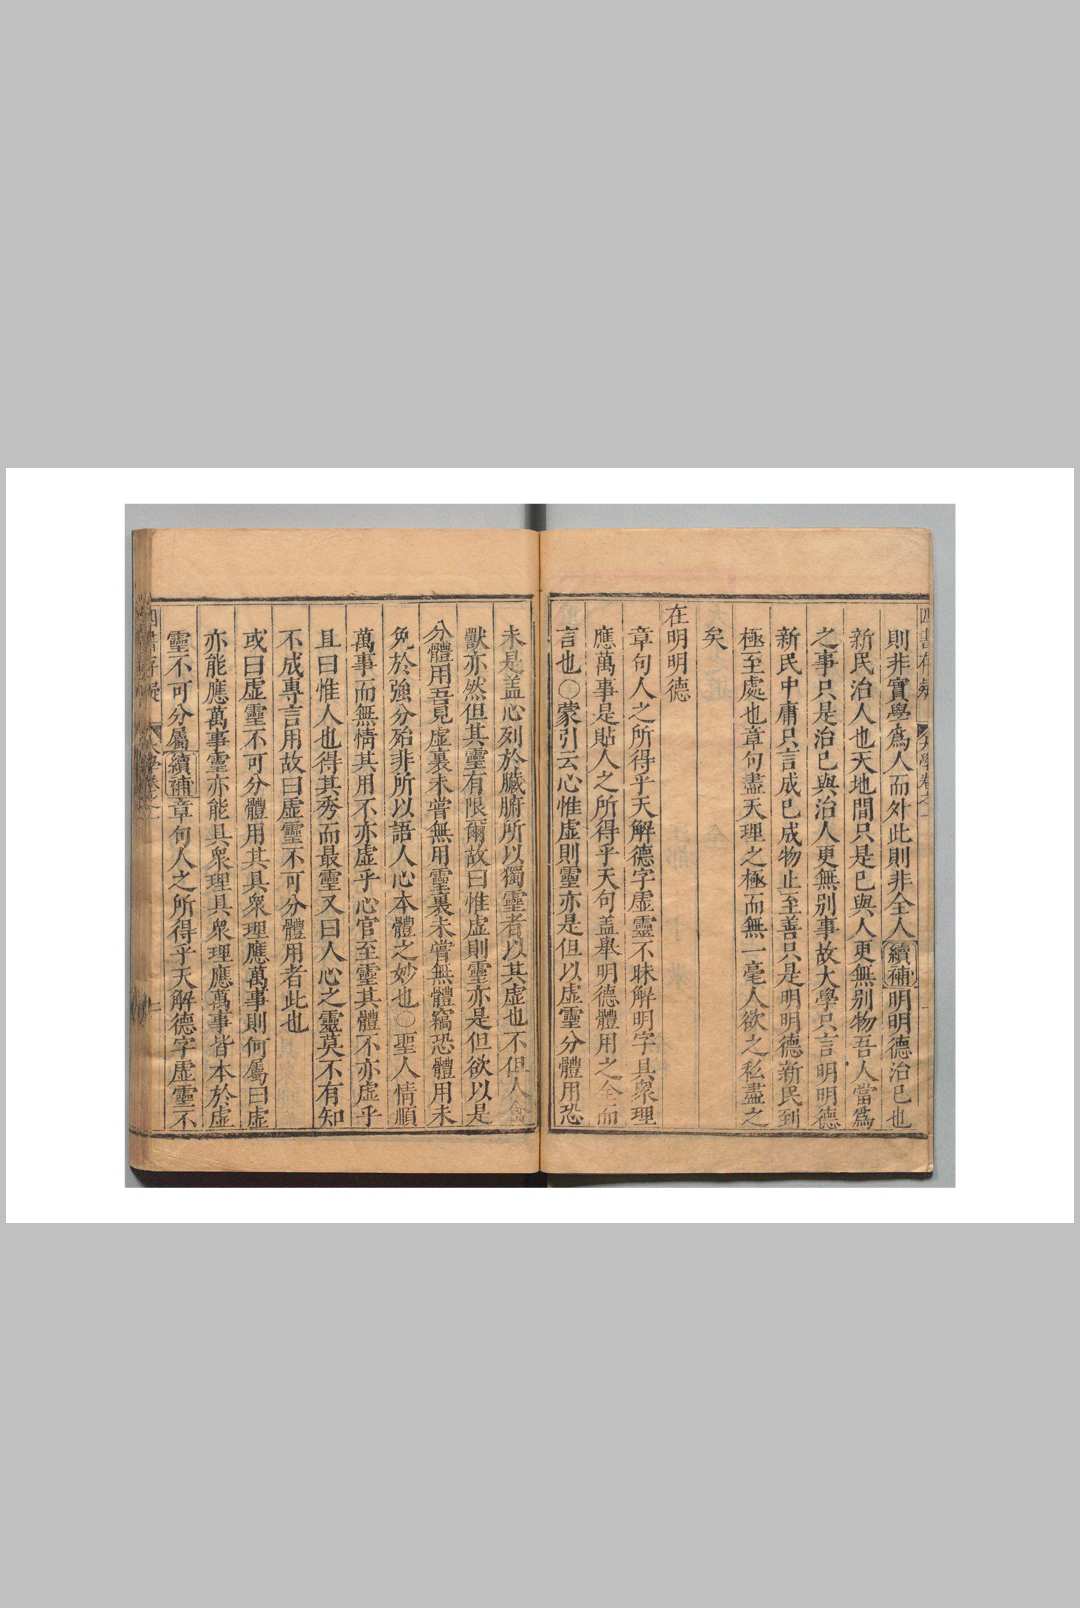 四書存疑 大學卷之一
則非實學爲人而外此則非全人續補明明德治已也
新民治人也天地間只是已與人更無別物吾人當爲
之事只是治已與治人更無別事故大學只言明明德
新民中庸只言成已成物止至善只是明明德新民到
極至處也章句盡天理之極而無一毫人欲之私盡之
矣
在明明德
章句人之所得乎天解德字虛靈不昧解明字具衆理
應萬事是貼人之所得乎天句盖舉明德體用之全而
言也○蒙引云心惟虛則靈亦是但以虛靈分體用恐
未是盖心列於臟腑所以獨靈者以其虛也不但人禽
獸亦然但其靈有限爾故曰惟虛則靈亦是但欲以是
分體用吾見虛裏未嘗無用靈裏未嘗無體竊恐體用未
免於強分殆非所以語人心本體之妙也○聖人情順
萬事而無情其用不亦虛乎心官至靈其體不亦虛乎
且曰惟人也得其秀而最靈又曰人心之靈莫不有知
不成專言用故曰虛靈不可分體用者此也
或曰虛靈不可分體用其具衆理應萬事則何屬曰虛
亦能應萬事靈亦能具衆理具衆理應萬事皆本於虛
靈不可分屬續補章句人之所得乎天解德字虛靈不
四書存疑 大學卷之一 二